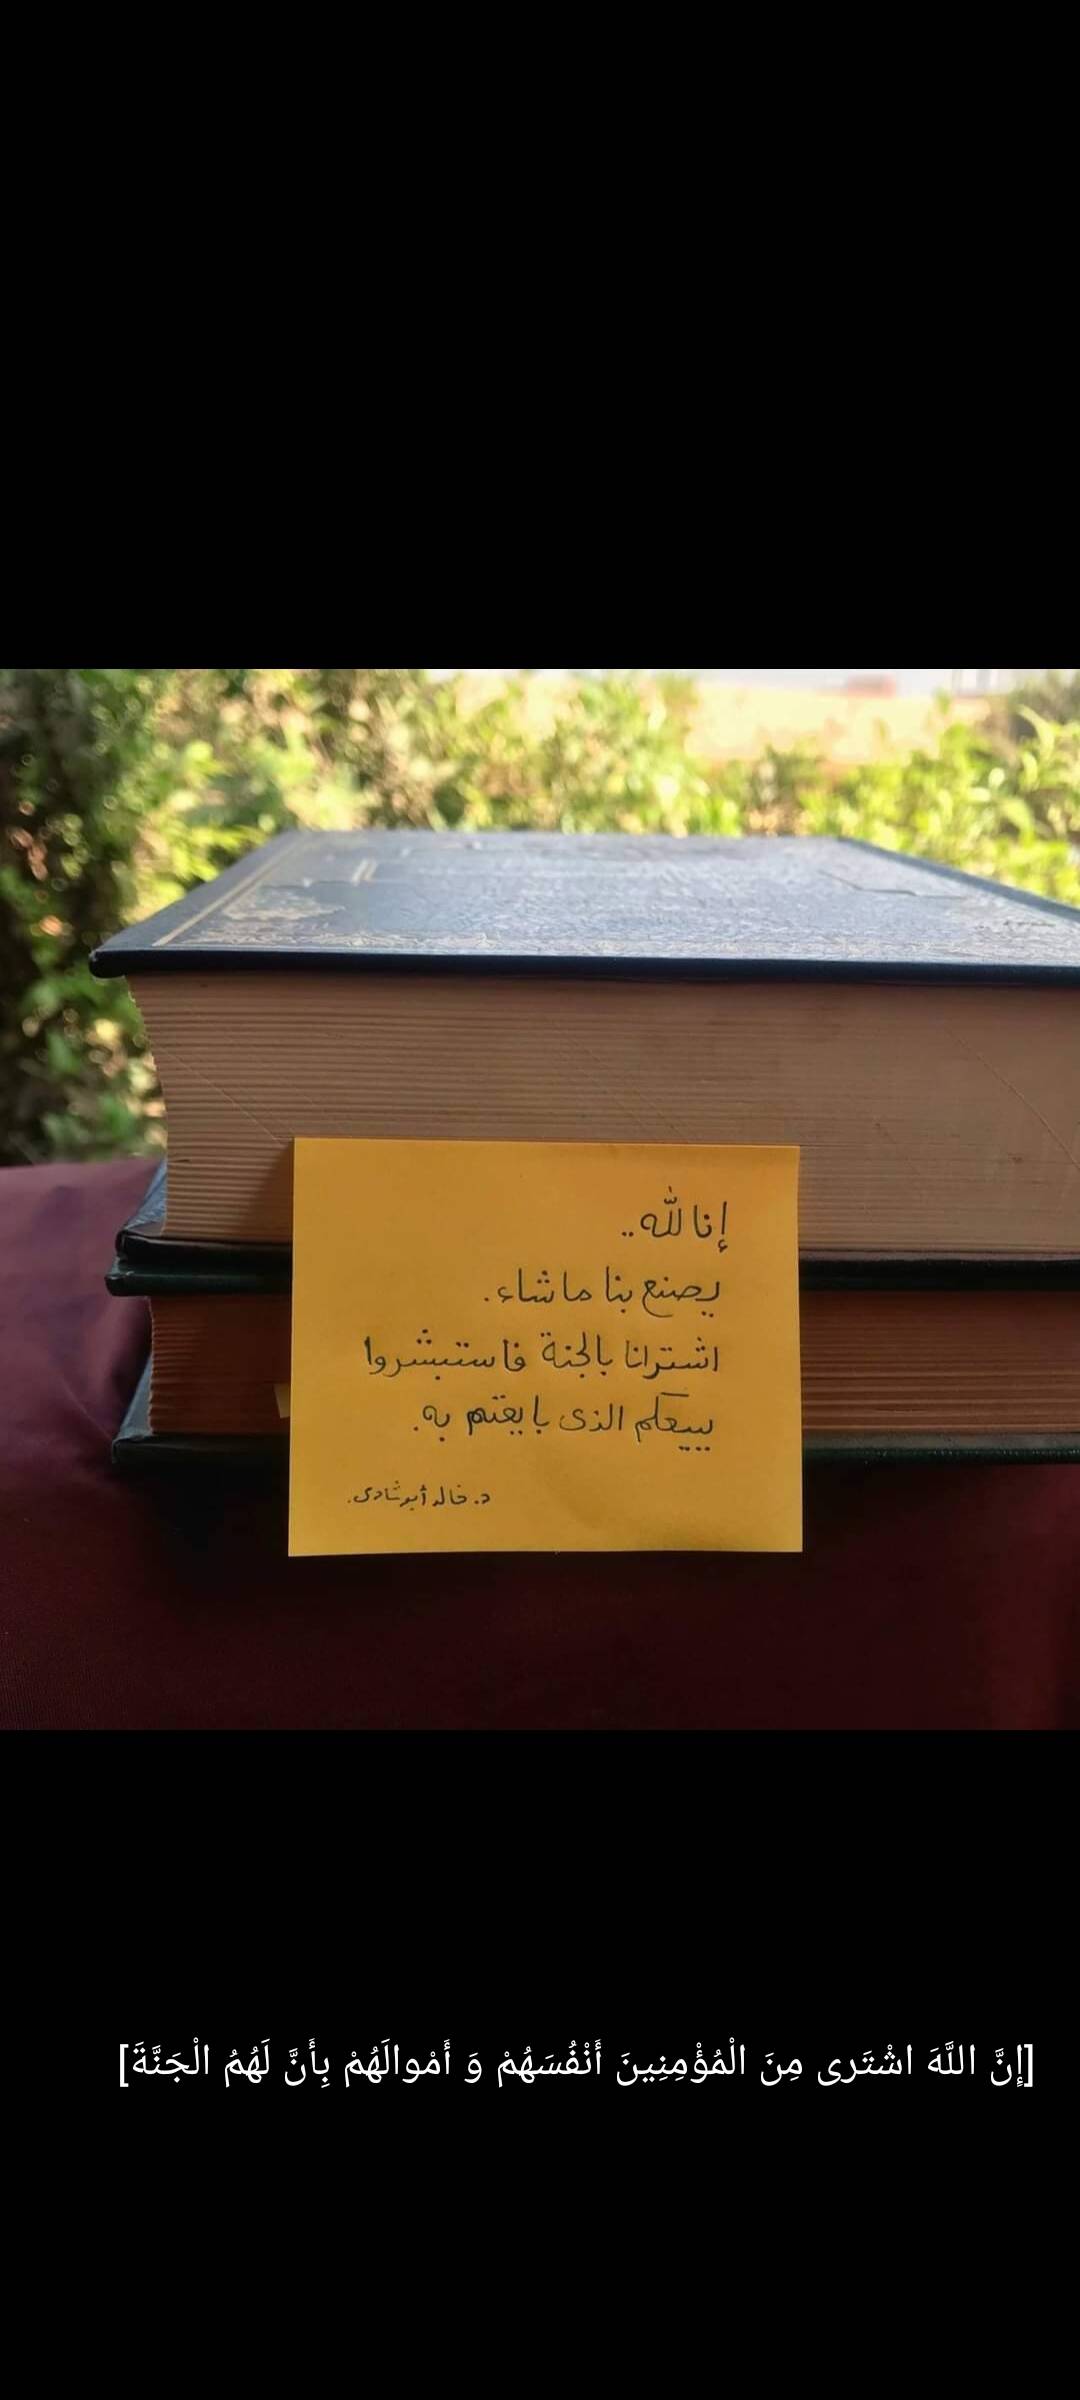 إنا لله..
يصنع بنا ما شاء.
اشترانا بالجنة فاستبشروا
ببيعكم الذى بايعتم به.
د. خالد أبو شادى.
[إِنَّ اللَّهَ اشْتَرى مِنَ الْمُؤْمِنِينَ أَنْفُسَهُمْ وَ أَمْوالَهُمْ بِأَنَّ لَهُمُ الْجَنَّةَ]